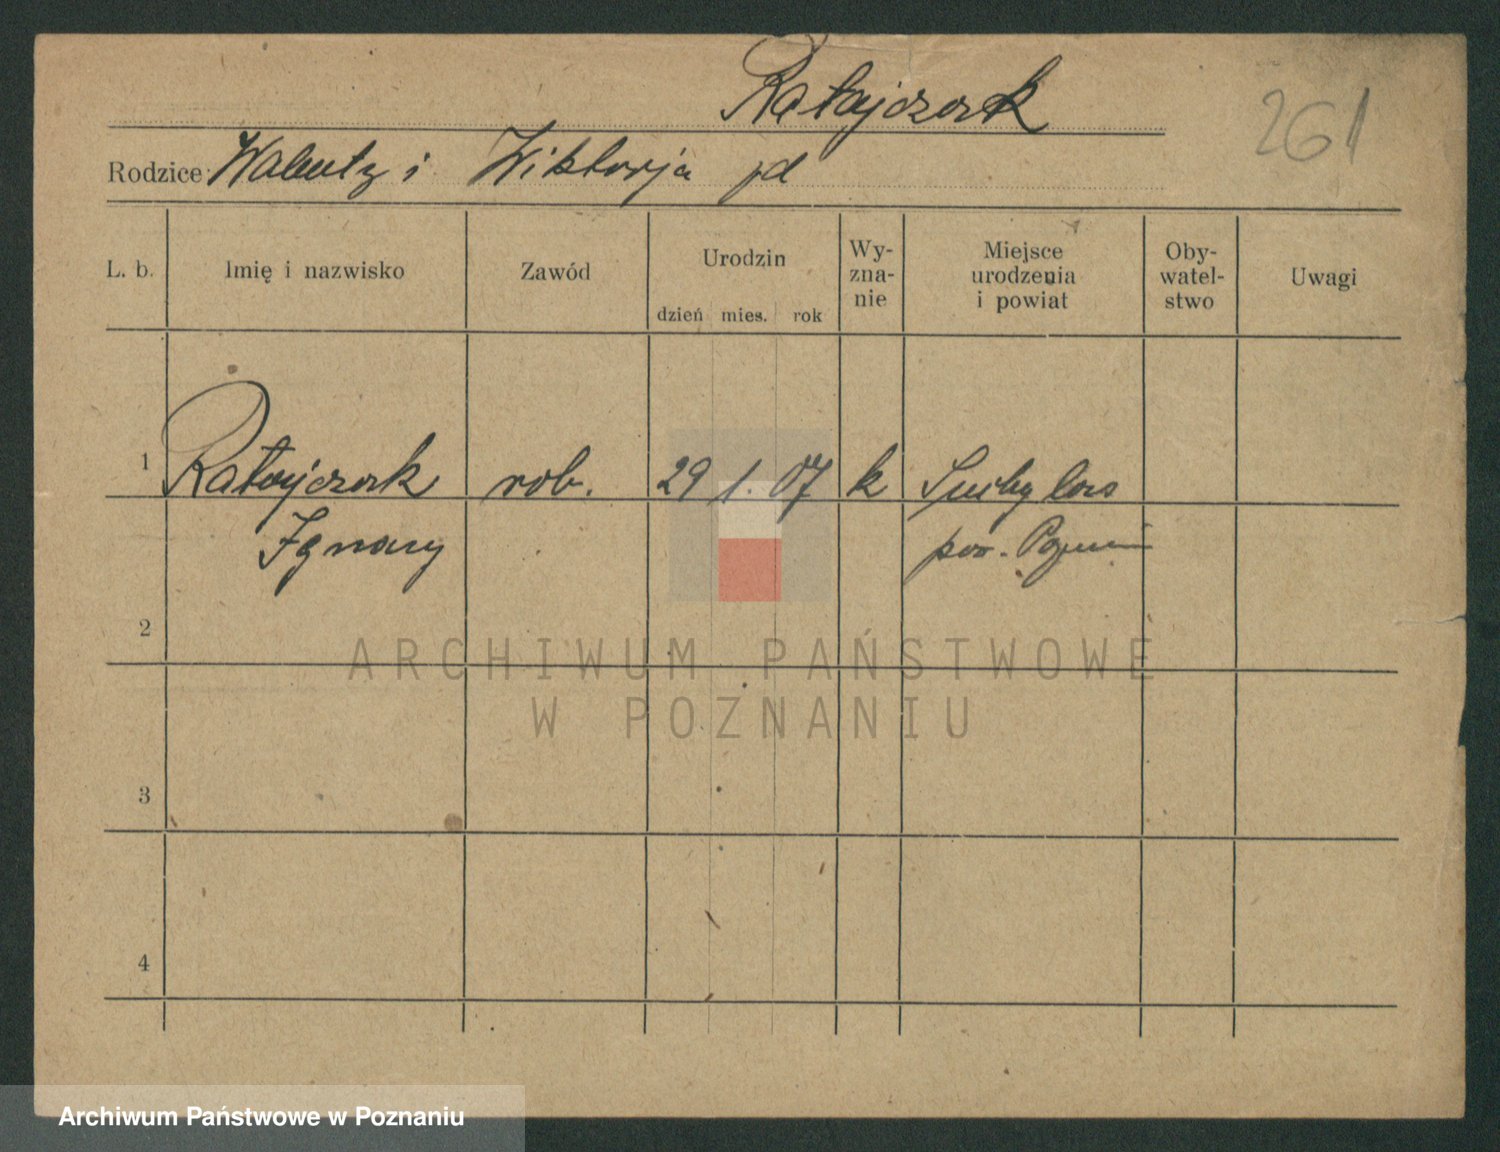 Ratajczak
261
Rodzice: Walenty i Wiktorja jd
L. b. Imię i nazwisko Zawód Urodzin dzień mies. rok Wy-zna-nie Miejsce urodzenia i powiat Oby-watel-stwo Uwagi
1 Ratajczak rob. 29 1. 07 k Suchylas
Ignacy pow. Poznań
2
ARCHIWUM PAŃSTWOWE
W POZNANIU
3
4
Archiwum Państwowe w Poznaniu